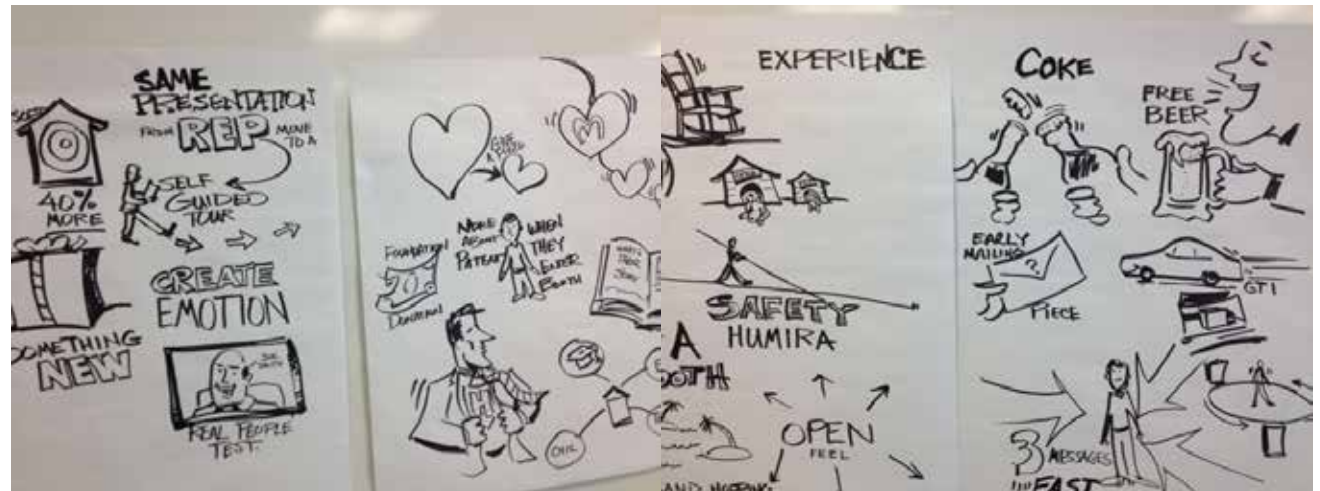 SAME
PRESENTATION
FROM REP MOVE
TO A
SELF
GUIDED
TOUR
40%
MORE
CREATE
EMOTION
SOMETHING
NEW
REAL PEOPLE
TEST.
M
FOUNDATION
DONATION
MORE
ABOUT
PATIENT
WHEN
THEY
ENTER
BOOTH
H
EXPERIENCE
SAFETY
HUMIRA
A
OOTH
OPEN
FEEL
COKE
FREE
BEER
EARLY
MAILING
?
PIECE
GTI
3 MESSAGES
FAST